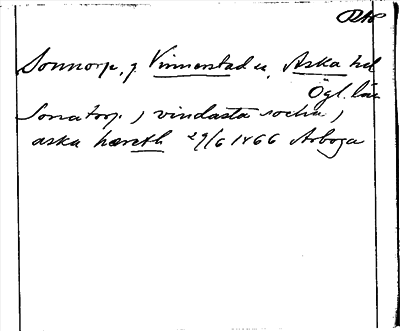 RAP
Sonnorp, g. Vinnerstad sn, Aska hd
Ögl. län
Sonatorp j vindasta sochn j
aska hæreth 29/6 1466 Arboga